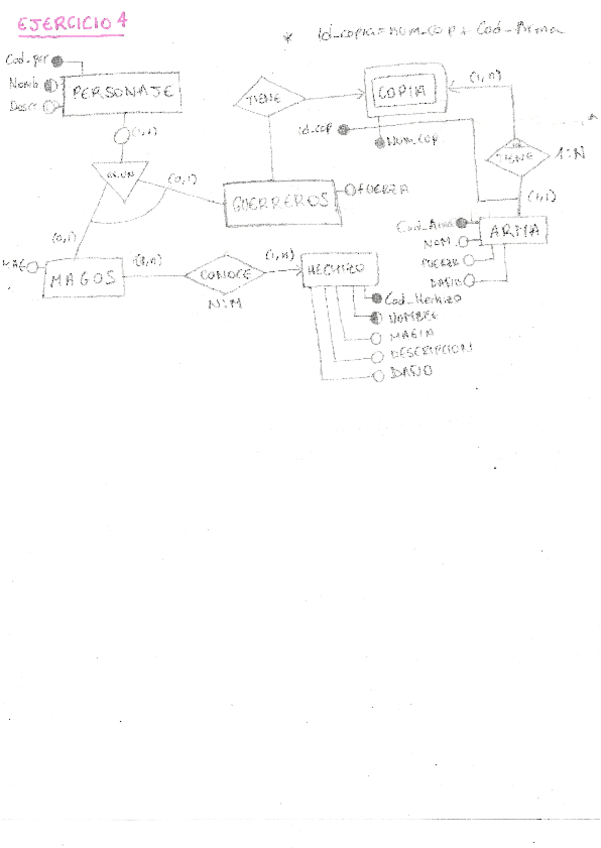 EJERCICIO 4
* Id_copia = Num_Cop + Cod_Arma
Cod_per
Nomb
Descr
PERSONAJE
(1,1)
ES.UN
(0,1)
(0,1)
TIENE
COPIA
(1,n)
Id_cop
Num_cop
TIENE
1:N
(1,1)
GUERREROS
FUERZA
Cod_Arma
NOM.
FUERZA
DAÑO
ARMA
MAG
MAGOS
(1,n)
CONOCE
N:M
(1,n)
HECHIZO
Cod_Hechizo
NOMBRE
MAGIA
DESCRIPCION
DAÑO